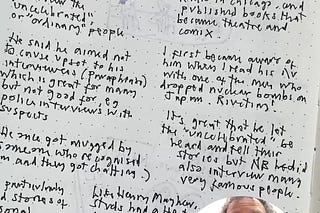 "uncelebrated"
or "ordinary" people
He said he aimed not
to cause upset to his
interviewees (paraphrase)
which is great for many
but not good for, eg
police interviews with
suspects
He once got mugged by
someone who recognised
him and they got chatting.)
particularly
stories of
in Chicago, and
published books that
became theatre and
comix
I first became aware of
him when I read his i/v
with one of the men who
dropped nuclear bombs on
Japan. Riveting!
It's great that he let
the "uncelebrated" be
heard and tell their
stories but NB he did
also interview many
very famous people.
Like Henry Mayhew,
Studs had a